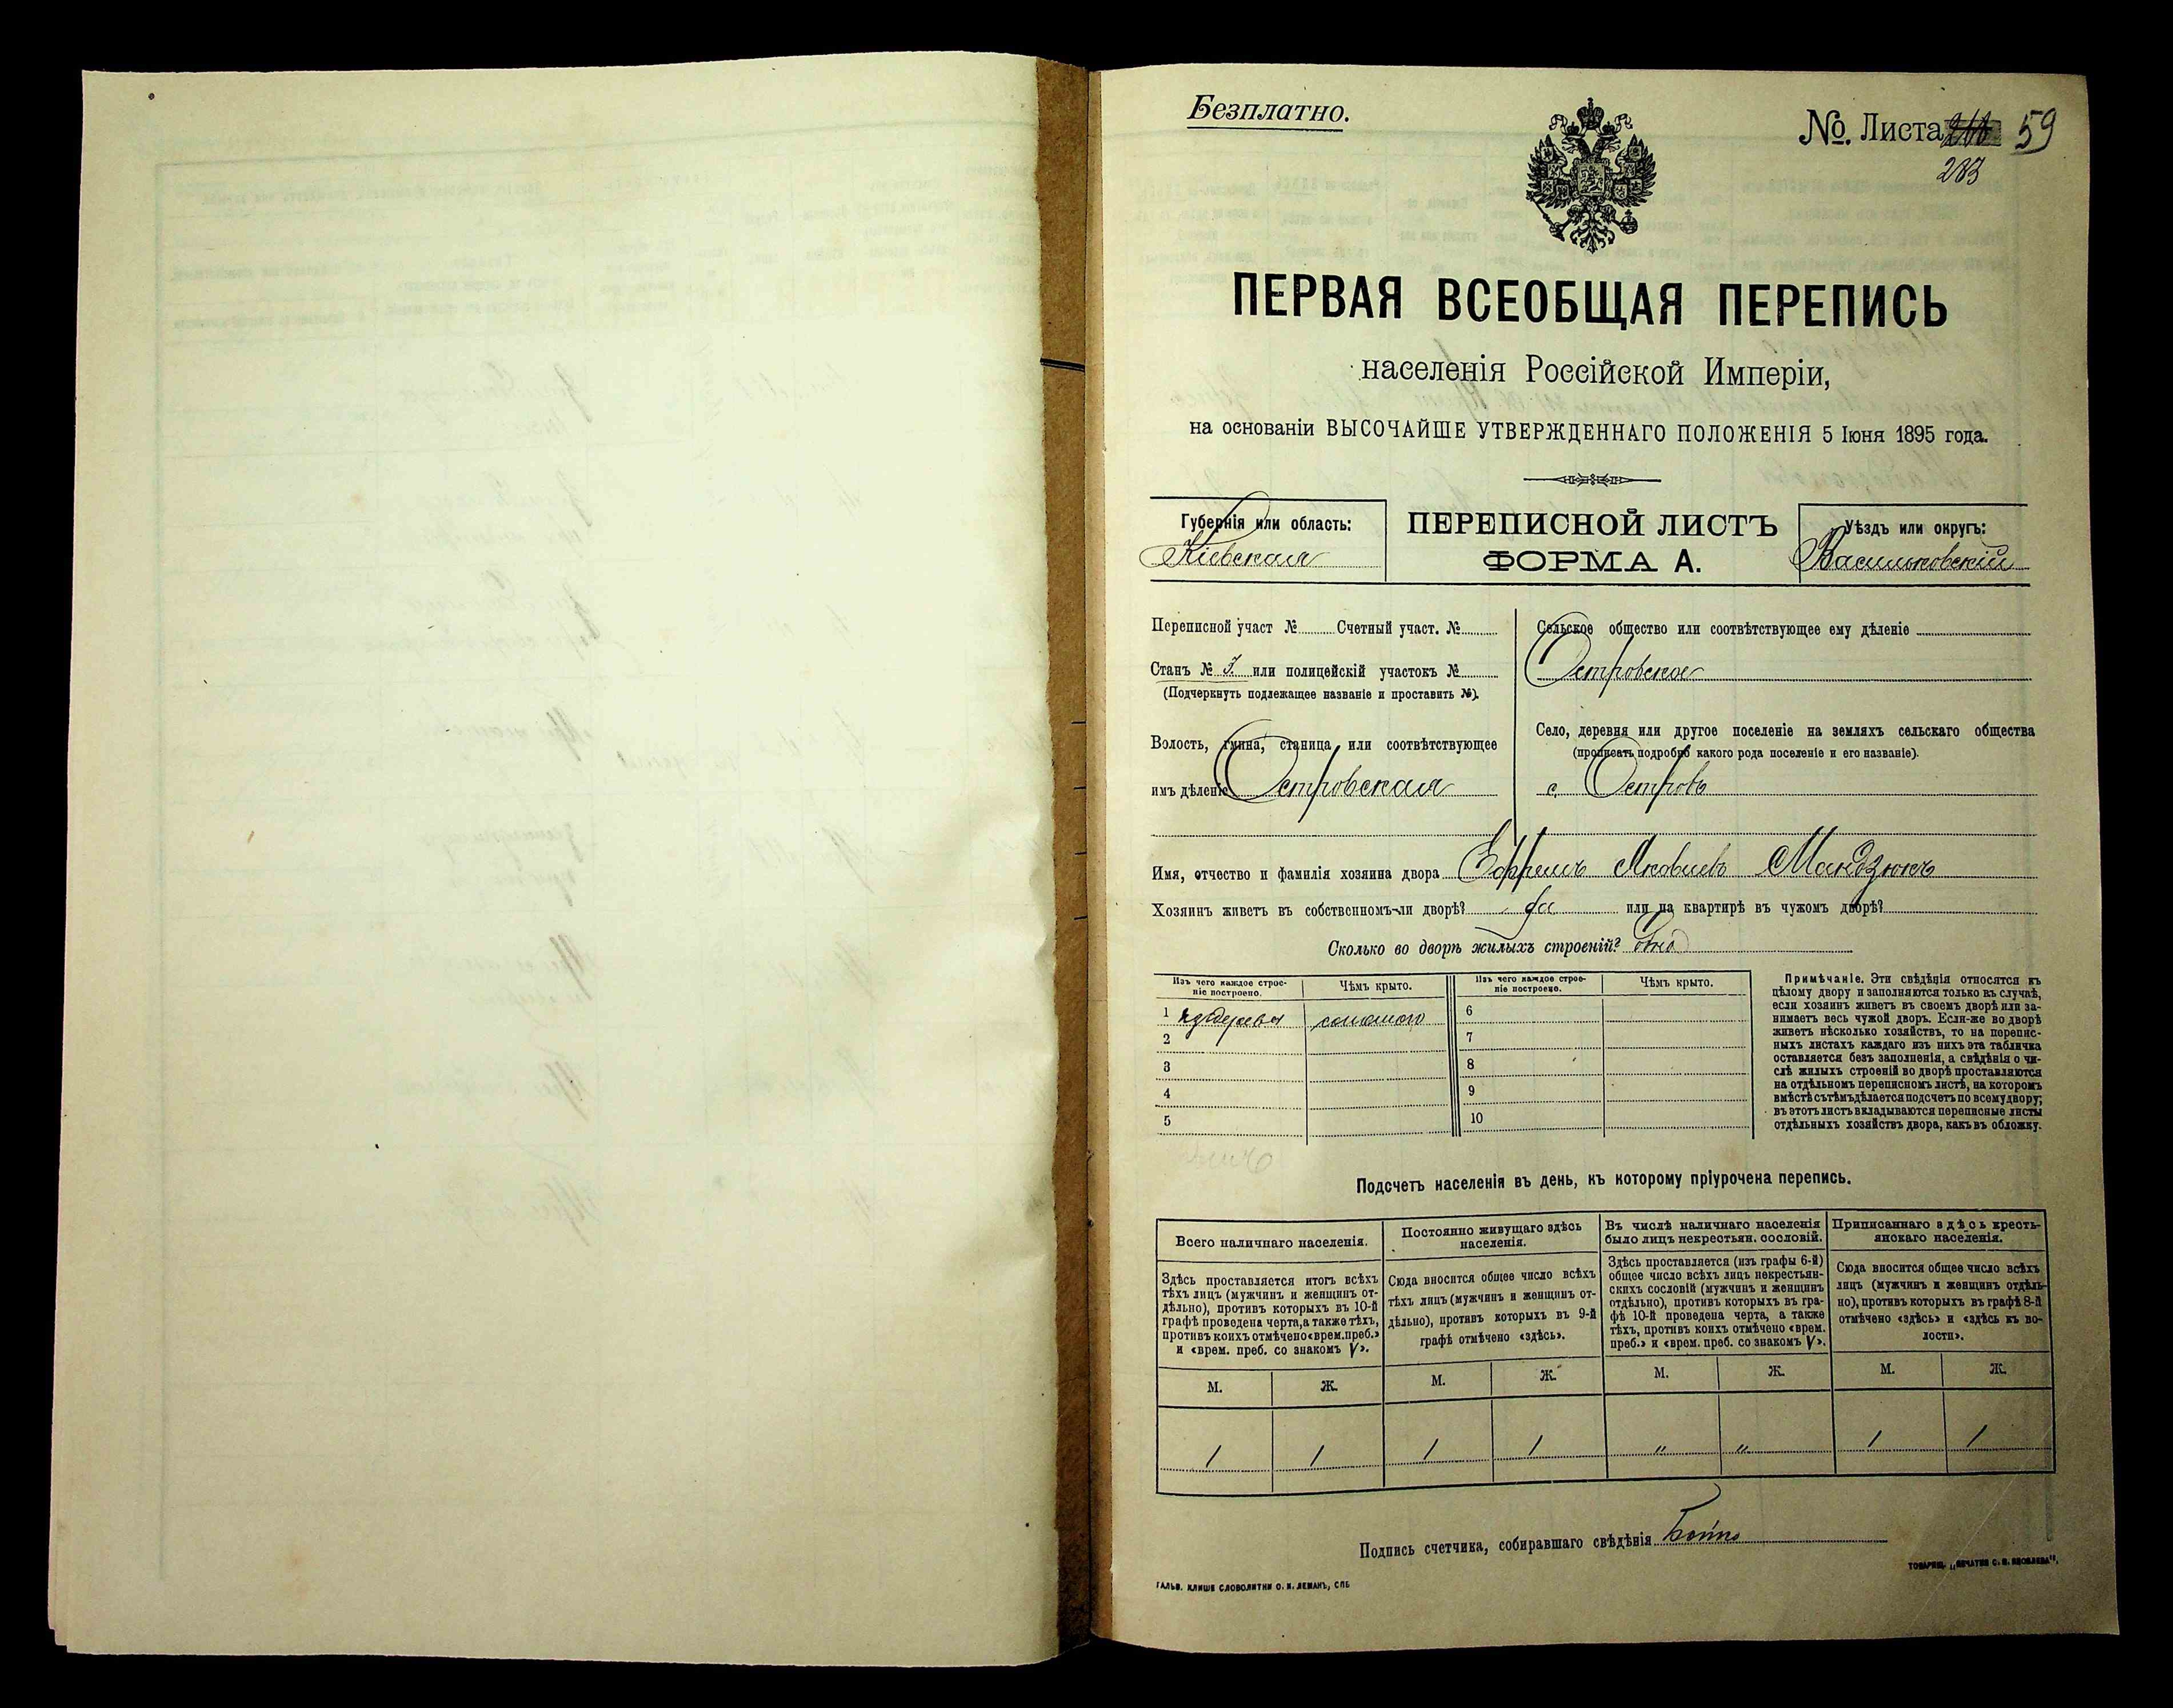 Безплатно.
№ Листа 59
283
ПЕРВАЯ ВСЕОБЩАЯ ПЕРЕПИСЬ
населенія Россійской Имперіи,
на основаніи ВЫСОЧАЙШЕ УТВЕРЖДЕННАГО ПОЛОЖЕНІЯ 5 Іюня 1895 года.
Губернія или область:
Кіевская
ПЕРЕПИСНОЙ ЛИСТЪ
ФОРМА А.
Уѣздъ или округъ:
Васильковскій
Переписной участ № Счетный участ. №
Станъ № 3. или полицейскій участокъ №
(Подчеркнуть подлежащее названіе и проставить №).
Волость, гмина, станица или соотвѣтствующее
имъ дѣленіе Островская
Сельское общество или соотвѣтствующее ему дѣленіе
Островское
Село, деревня или другое поселеніе на земляхъ сельскаго общества
(прописать подробно какого рода поселеніе и его названіе).
с. Островъ
Имя, отчество и фамилія хозяина двора Ефремъ Яковлевъ Мандзюкъ
Хозяинъ живетъ въ собственномъ-ли дворѣ? да или на квартирѣ въ чужомъ дворѣ?
Сколько во дворѣ жилыхъ строеній? одно
Изъ чего каждое строе-
ніе построено.
Чѣмъ крыто.
Изъ чего каждое строе-
ніе построено.
Чѣмъ крыто.
1 изъ дерева соломою 6
2 7
3 8
4 9
5 10
Примѣчаніе. Эти свѣдѣнія относятся къ
цѣлому двору и заполняются только въ случаѣ,
если хозяинъ живетъ въ своемъ дворѣ или за-
нимаетъ весь чужой дворъ. Если-же во дворѣ
живетъ нѣсколько хозяйствъ, то на перепис-
ныхъ листахъ каждаго изъ нихъ эта табличка
оставляется безъ заполненія, а свѣдѣнія о чи-
слѣ жилыхъ строеній во дворѣ проставляются
на отдѣльномъ переписномъ листѣ, на которомъ
вмѣстѣ съ тѣмъ дѣлается подсчетъ по всему двору;
въ этотъ листъ вкладываются переписные листы
отдѣльныхъ хозяйствъ двора, какъ въ обложку.
Подсчетъ населенія въ день, къ которому пріурочена перепись.
Всего наличнаго населенія.
Постоянно живущаго здѣсь
населенія.
Въ числѣ наличнаго населенія
было лицъ некрестьян. сословій.
Приписаннаго здѣсь кресть-
янскаго населенія.
Здѣсь проставляется итогъ всѣхъ
тѣхъ лицъ (мужчинъ и женщинъ от-
дѣльно), противъ которыхъ въ 10-й
графѣ проведена черта, а также тѣхъ,
противъ коихъ отмѣчено «врем. преб.»
и «врем. преб. со знакомъ V».
Сюда вносится общее число всѣхъ
тѣхъ лицъ (мужчинъ и женщинъ от-
дѣльно), противъ которыхъ въ 9-й
графѣ отмѣчено «здѣсь».
Здѣсь проставляется (изъ графы 6-й)
общее число всѣхъ лицъ некрестьян-
скихъ сословій (мужчинъ и женщинъ
отдѣльно), противъ которыхъ въ гра-
фѣ 10-й проведена черта, а также
тѣхъ, противъ коихъ отмѣчено «врем.
преб.» и «врем. преб. со знакомъ V».
Сюда вносится общее число всѣхъ
лицъ (мужчинъ и женщинъ отдѣль-
но), противъ которыхъ въ графѣ 8-й
отмѣчено «здѣсь» и «здѣсь къ во-
лости».
М. Ж. М. Ж. М. Ж. М. Ж.
1 1 1 1 " " 1 1
Подпись счетчика, собиравшаго свѣдѣнія
ГАЛЬВ. КЛИШЕ СЛОВОЛИТНИ О. И. ЛЕМАНЪ, СПБ
ТОВАРИЩ. „ПЕЧАТНЯ С. П. ЯКОВЛЕВА“.